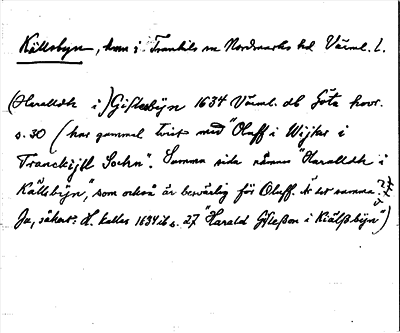 Källsbyn, hem i Frankils sn Nordmarks hd Värml. l.
(Haralldh i) Gislesbÿn 1634 Värml. db Göta hovr.
s. 30 (har gammal tvist med "Oluff i Wijker i
Franckijll Sochn". Samma sida nämnes "Haralldh i
Källsbÿn", som också är besvärlig för Oluff. Är det samma?
Ja, säkert: H. kallas 1634 ib s. 27 "Harald Gÿleßon i Kiälßbÿn")